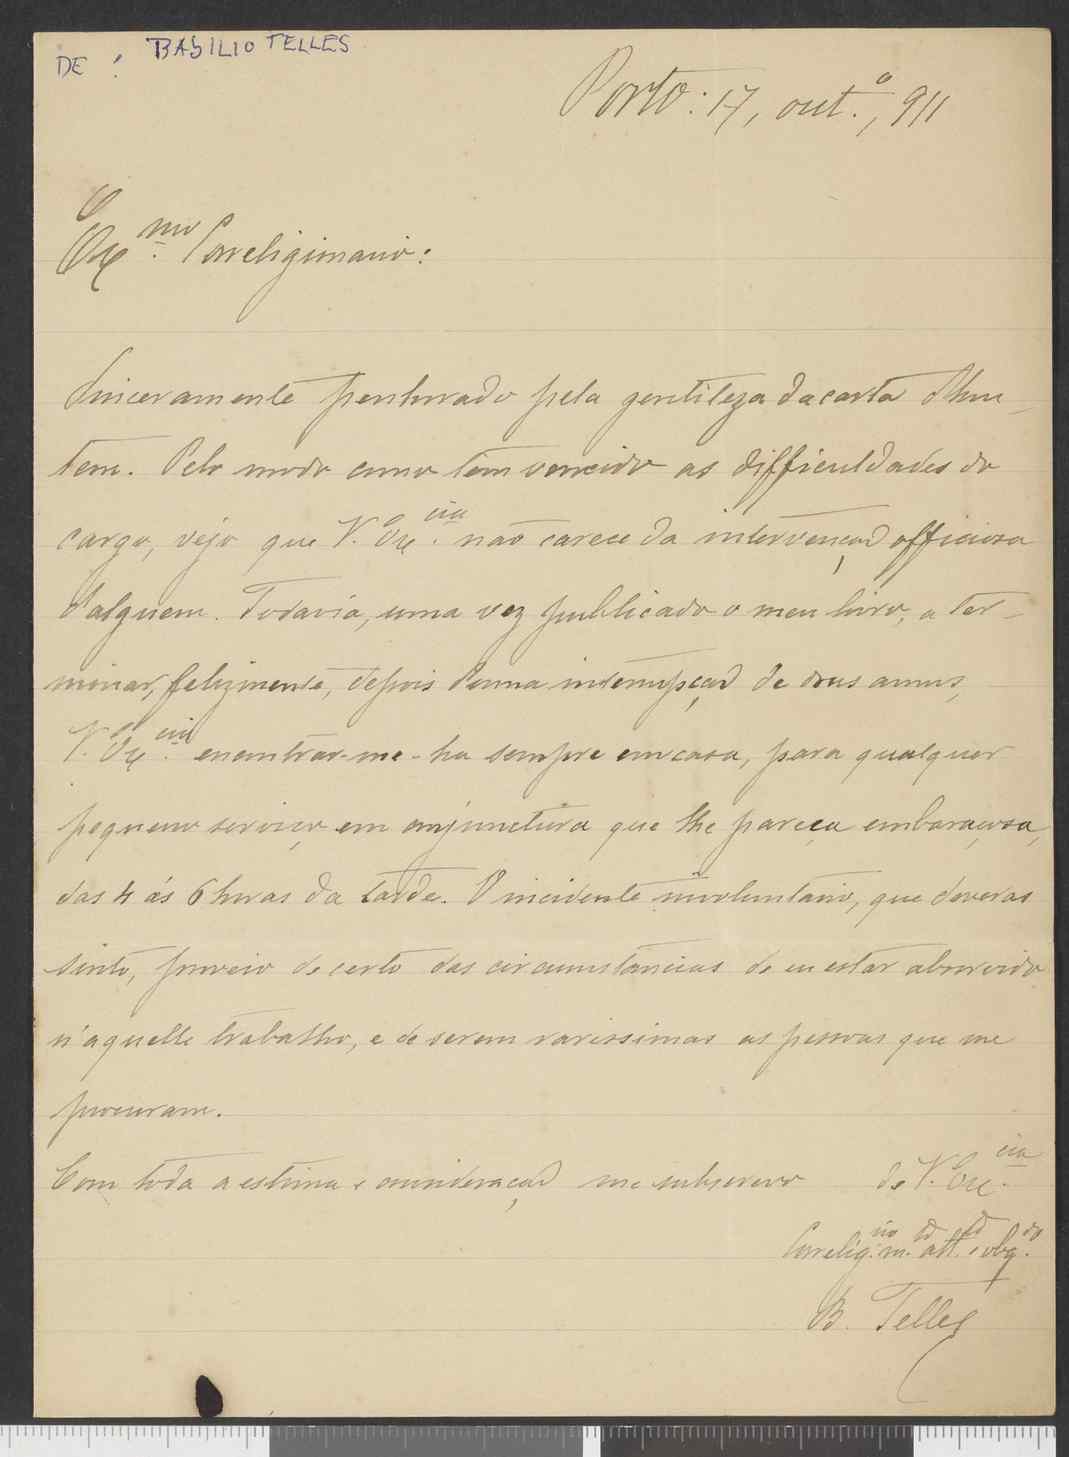 DE : BASILIO TELLES
Porto: 17, out.º, 911
Ex.mo Correligionario:
Sinceramente penhorado pela gentileza da carta d'hon-
tem. Pelo modo como tem vencido as difficuldades do
cargo, vejo que V. Ex.cia não carece da intervenção officiosa
d'alguem. Todavia, uma vez publicado o meu livro, a ter-
minar, felizmente, depois d'uma interrupção de dous annos,
V. Ex.cia encontrar-me-ha sempre em casa, para qualquer
pequeno serviço, em conjunctura que lhe pareça embaraçosa,
das 4 ás 6 horas da tarde. O incidente involuntario, que deveras
sinto, proveio de certo das circumstancias de eu estar absorvido
n'aquelle trabalho, e de serem rarissimas as pessoas que me
procuram.
Com toda a estima e consideração me subscrevo de V. Ex.cia
Correlig.rio m.to att.to e obg.do
B. Telles